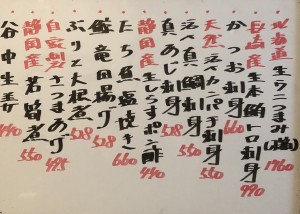 北海道産生ウニつまみ(塩水) 1760
長崎産生本鮪トロ刺身 990
かつお刺身 660
天然活〆カンパチ刺身 550
活〆真鯛刺身 550
真あじ刺身
静岡産生しらすポン酢 440
たち魚塩焼き 660
鮫竜田揚げ 528
ぶり大根煮 528
自家製さつまあげ 495
静岡産若筍煮 550
谷中生姜 440